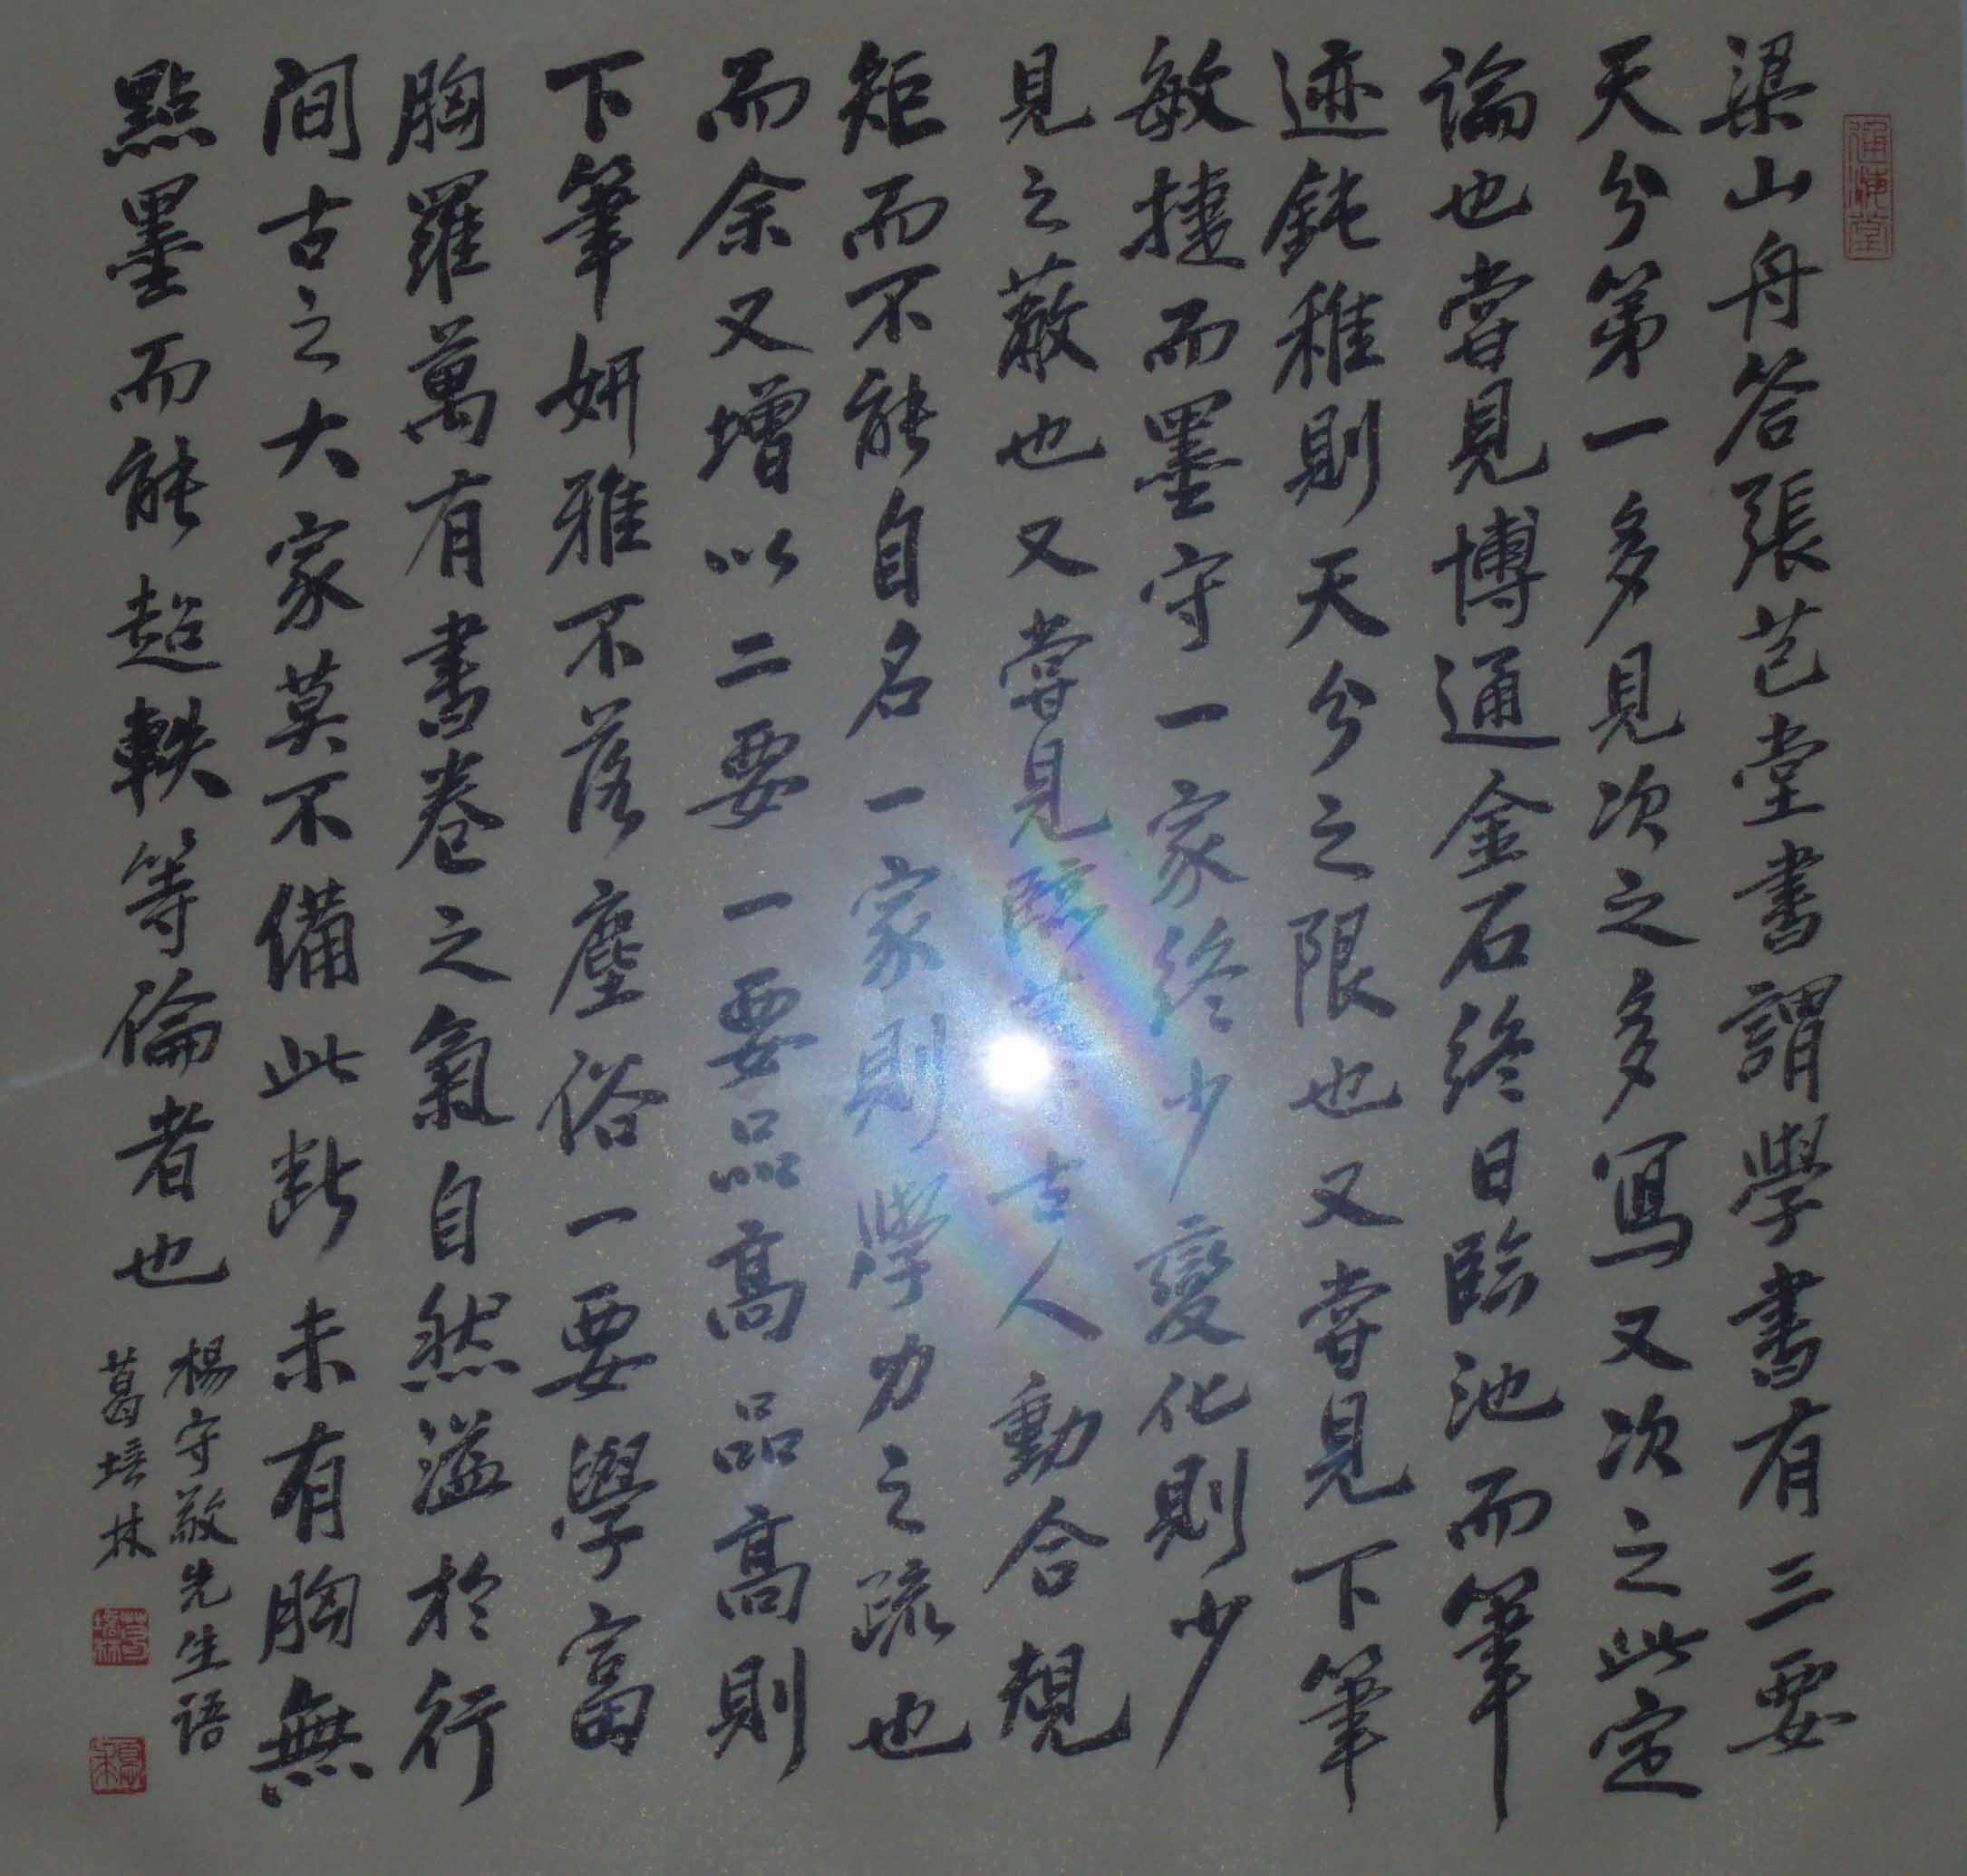 梁山舟答張芑堂書謂學書有三要
天分第一多見次之多寫又次之此定
論也嘗見博通金石終日臨池而筆
迹鈍稚則天分之限也又嘗見下筆
敏捷而墨守一家終少變化則少
見之蔽也又嘗見臨古人動合規
矩而不能自名一家則學力之疏也
而余又增以二要一要品高品高則
下筆妍雅不落塵俗一要學富
胸羅萬有書卷之氣自然溢於行
間古之大家莫不備此斷未有胸無
點墨而能超軼等倫者也
楊守敬先生語
葛培林